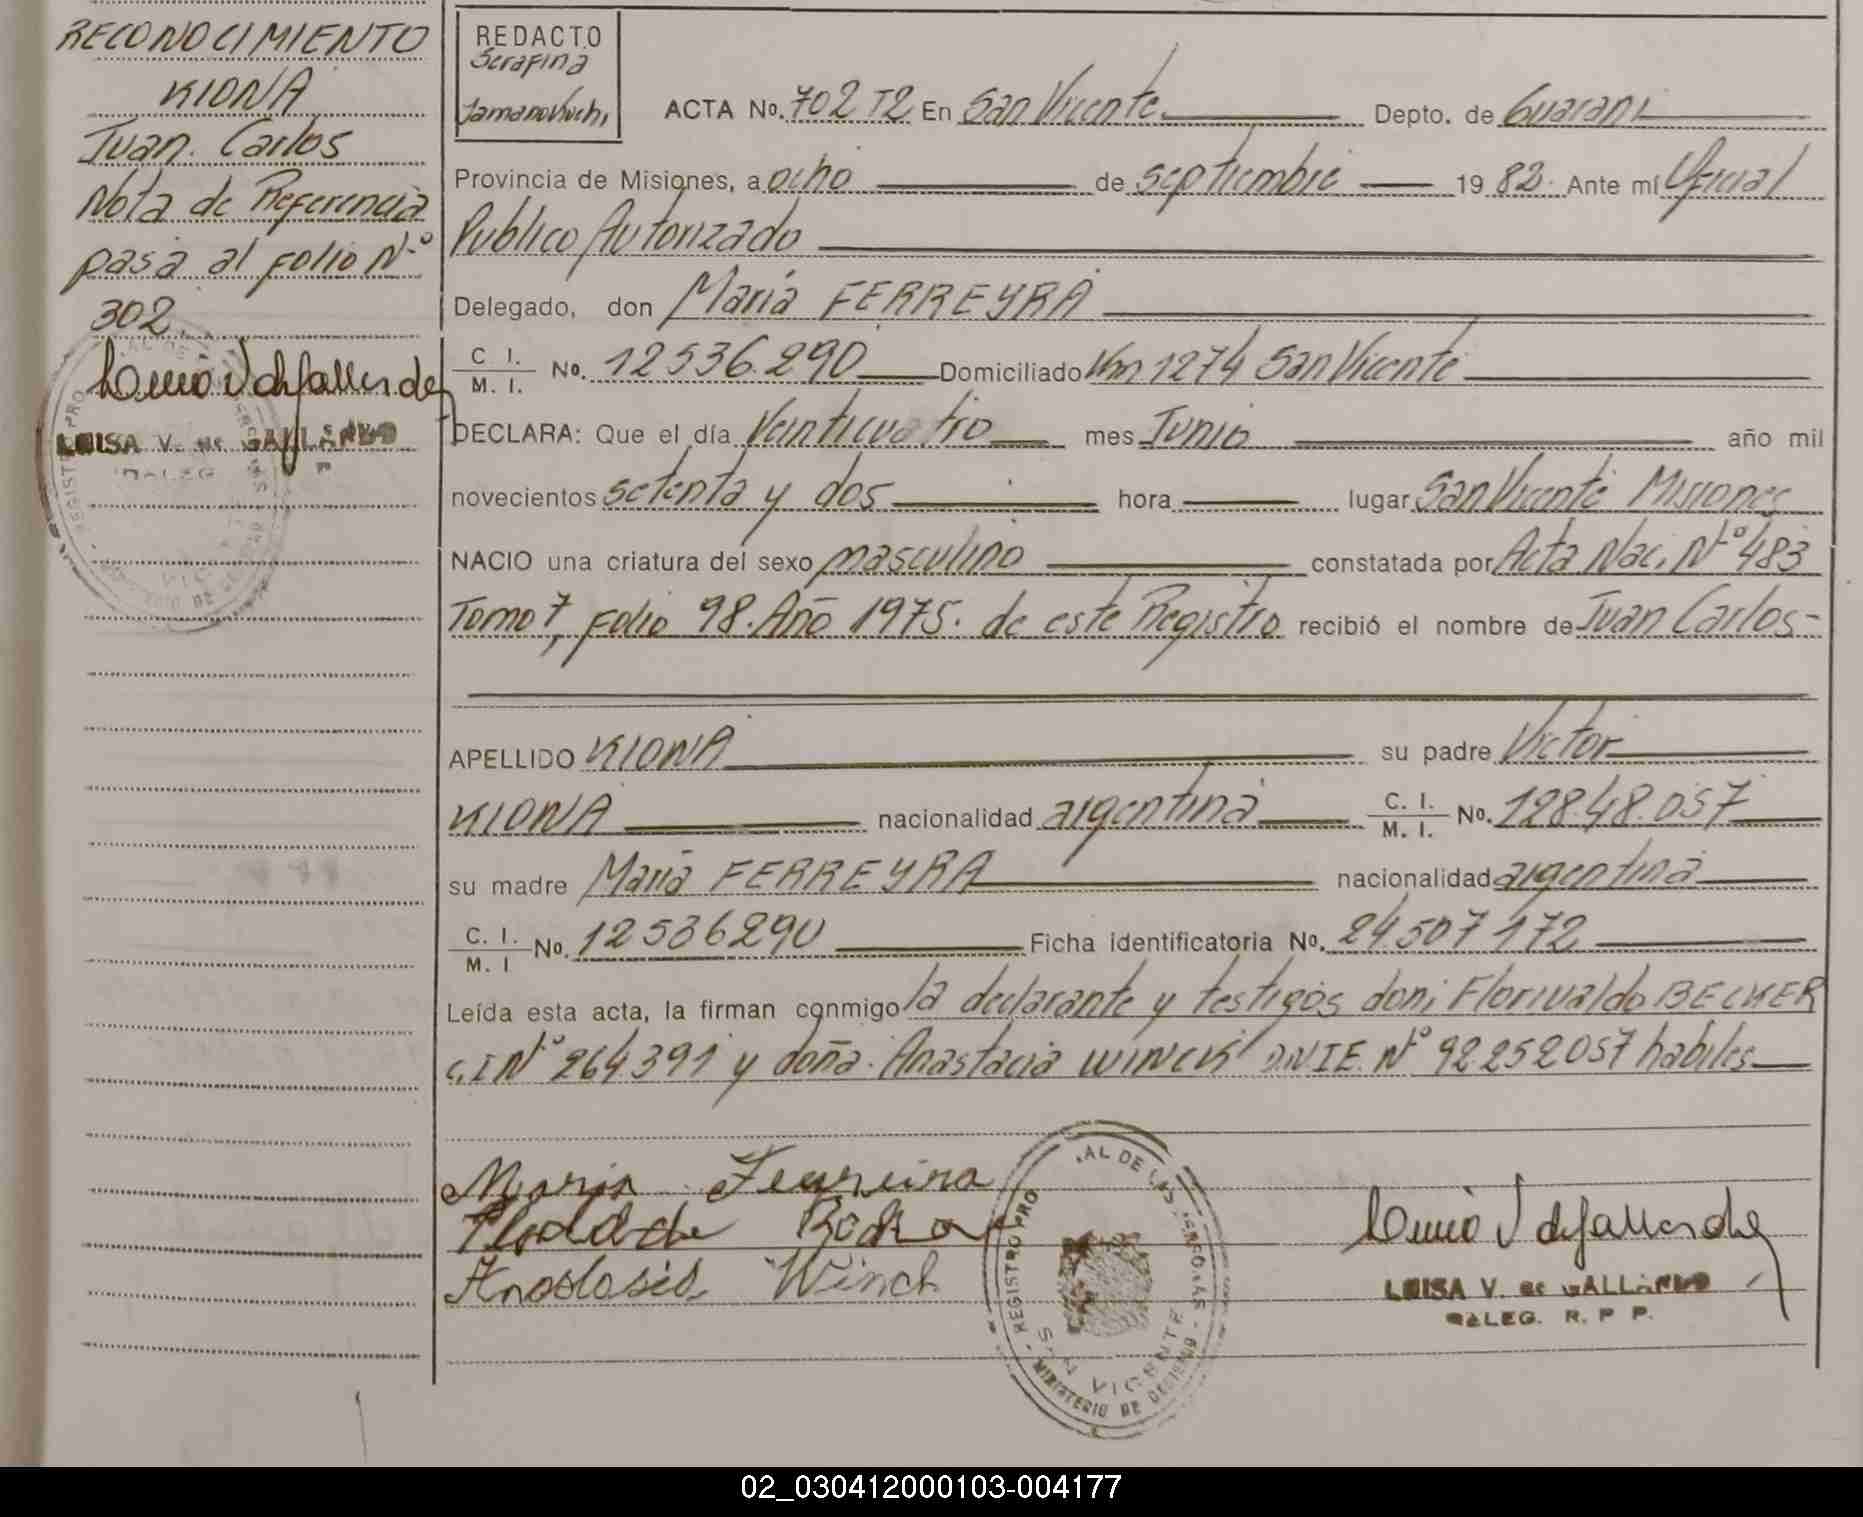 RECONOCIMIENTO
KIONA
Juan Carlos
Nota de Referencia
pasa al folio Nº
302
LUISA V. de GALLARDO
REDACTO
Serafina
ACTA No. 702 T2 En San Vicente Depto. de Guarani
Provincia de Misiones, a ocho de septiembre 1982. Ante mí Oficial
Publico Autorizado
Delegado, don María FERREYRA
C. I. / M. I. No. 12536.290 Domiciliado Km 1274 San Vicente
DECLARA: Que el día Veinticuatro mes Junio año mil
novecientos setenta y dos hora lugar San Vicente Misiones
NACIO una criatura del sexo masculino constatada por Acta Nac. Nº 483
Tomo 7, Folio 98. Año 1975. de este Registro recibió el nombre de Juan Carlos-
APELLIDO KIONA su padre Victor
KIONA nacionalidad argentina C. I. / M. I. No. 128.48.057
su madre María FERREYRA nacionalidad argentina
C. I. / M. I No. 12536290 Ficha identificatoria No. 24507172
Leída esta acta, la firman conmigo la declarante y testigos don: Florivaldo BECKER
C.I Nº 264391 y doña. Anastacia WINCK DNIE. Nº 92252057 habiles
Maria Ferreira
Winch
REGISTRO PRO AL DE LAS PERSONAS
S VICENTE
MINISTERIO DE GOBIERNO
LUISA V. de GALLARDO
DELEG. R. P. P.
02_030412000103-004177